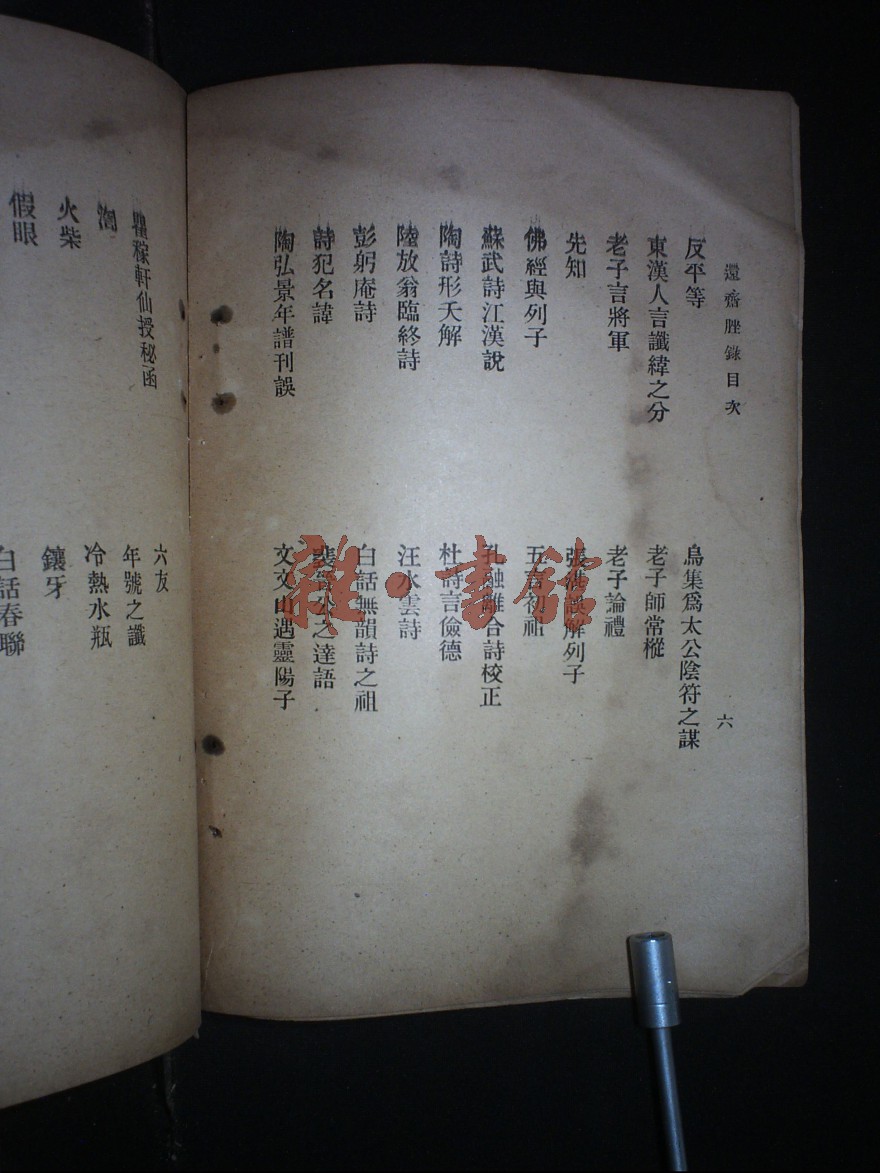 還齋脞錄目次
六
反平等
鳥集爲太公陰符之謀
東漢人言讖緯之分
老子師常樅
老子言將軍
老子論禮
先知
張湛誤解列子
佛經與列子
五言初祖
蘇武詩江漢說
孔融離合詩校正
陶詩形夭解
杜詩言儉德
陸放翁臨終詩
汪水雲詩
彭躬庵詩
白話無韻詩之祖
詩犯名諱
裴晉公之達語
陶弘景年譜刊誤
文文山遇靈陽子
瞿稼軒仙授秘函
六友
年號之讖
火柴
冷熱水瓶
假眼
鑲牙
白話春聯
雜·書館